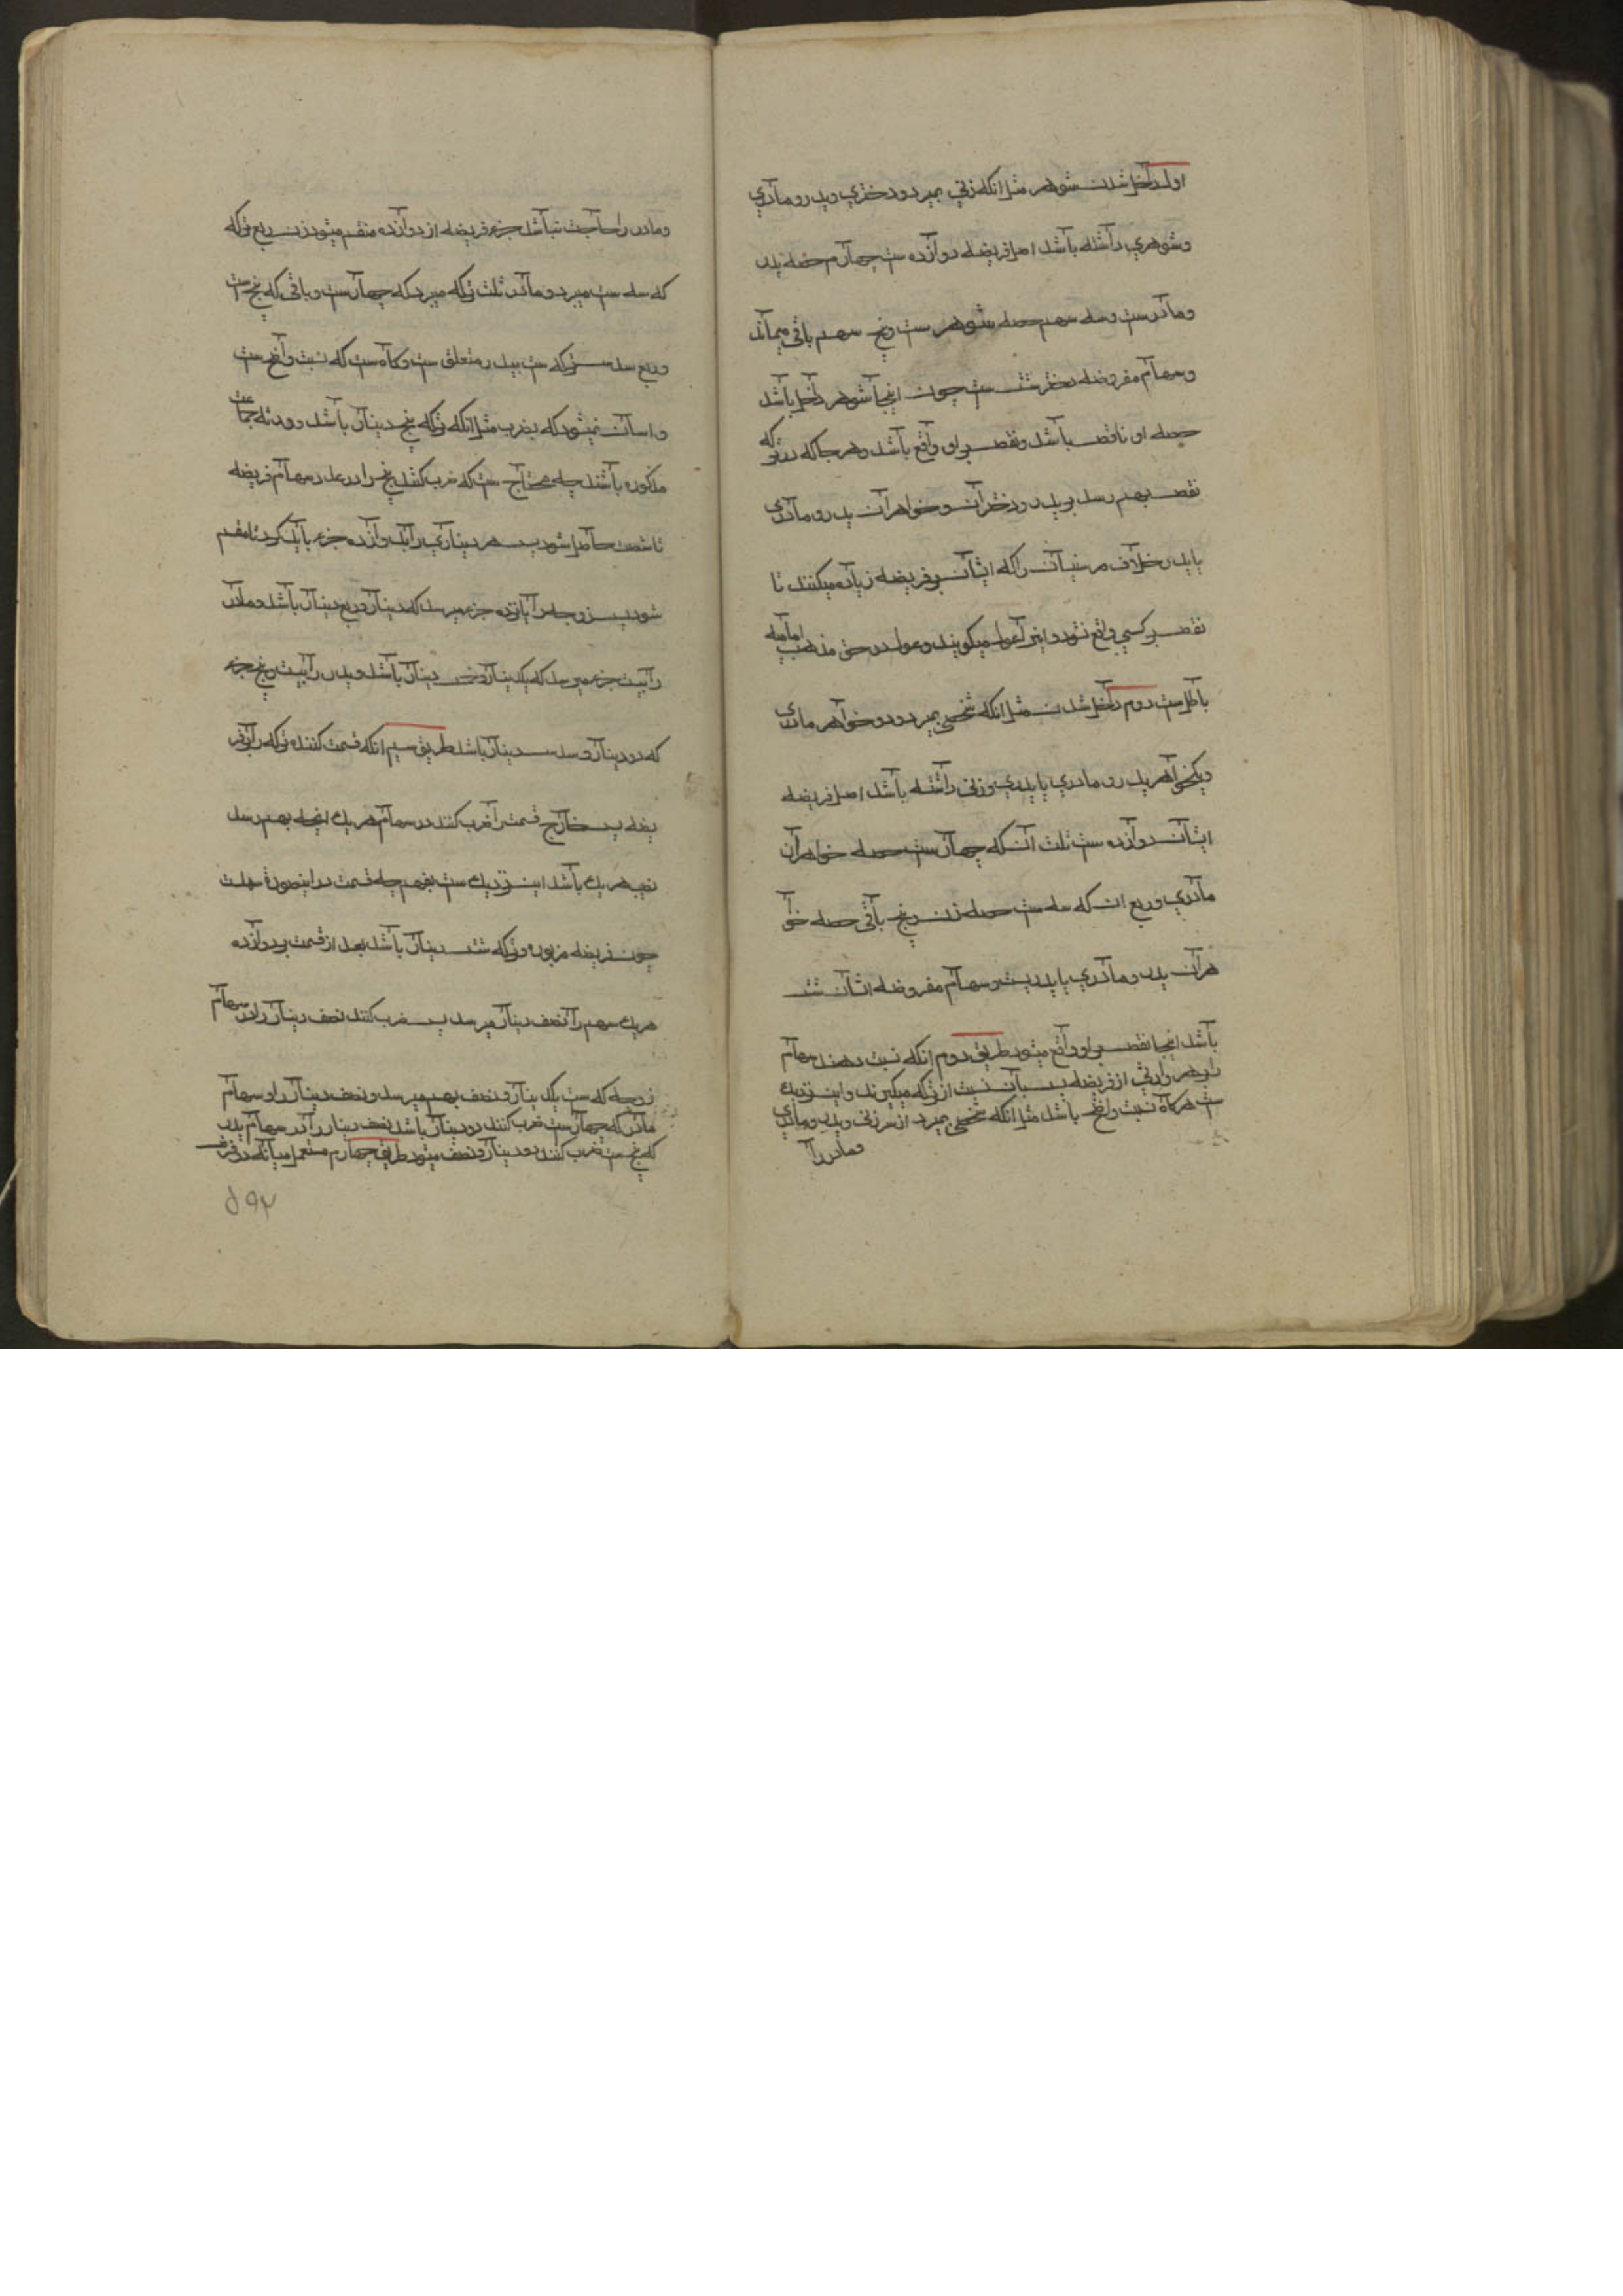 اول داخل شدن شوهر مثل انكه زني بميرد و دختري و پدر و مادري
و شوهري داشته باشد اصل فريضه دوازده ست چهارم حصه پدر
و مادرست و سه سهم حصه شوهر ست و پنج سهم باقي ميماند
و سهام مفروضه دختر شش ست چون اينجا شوهر داخل باشد
حصه او ناقص باشد و نقص بر او واقع باشد و هر جا كه در تركه
نقص بهم رسد بر پدر و دختران و خواهران پدر و مادري
يا پدر بخلاف مر سنيان را كه ايشان بر فريضه زياده ميكنند تا
نقص بر كسي واقع نشود و اين را عول ميكويند و عول در حق مذهب اماميه
باطل ست دوم داخل شدن مثل انكه شخصي بميرد و دو خواهر مادري
و يكخواهر پدر و مادري يا پدري و زني داشته باشد اصل فريضه
ايشان دوازده ست ثلث آن كه چهار ست حصه خواهران
مادري و ربع ان كه سه ست حصه زن و پنج باقي حصه خوا
هران پدر و مادري يا پدريست و سهام مفروضه ايشان شش
باشد اينجا نقص بر او واقع ميشود طريق دوم انكه نسبت دهند سهام
هر وارثي از فريضه پس بآن نسبت از تركه ميكيرند و اين نزديك
ست هركاه نسبت واضح باشد مثل انكه شخصي بميرد از سر زني و پدر و مادري
و مادر را
و مادر را حاجب نباشد جزء فريضه از دوازده منقسم ميشود زن ربع تركه
كه سه ست ميبرد و مادر ثلث تركه ميبرد كه چهار ست و باقي كه پنج است
و ربع سدس تركه ست بپدر متعلق ست و كاه ست كه نسبت واضح ست
و اسان نميشود كه بضرب مثل انكه تركه پنج دينار باشد و ورثه جماعت
مذكوره باشند چه محتاج ست كه ضرب كنند پنج را در عدد سهام فريضه
تا شصت حاصل شود پس هر ديناري را بدوازده جزء بايد كرد تا منقسم
شود پس زوجه را پانزده جزء ميرسد كه دينار و ربع دينار باشد و مادر
را بيست جزء ميرسد كه يكدينار و دو ثلث دينار باشد و پدر را بيست و پنج جزء
كه دو دينار و سدس دينار باشد طريق سيم انكه قسمت كننده تركه را بر فر
يضه پس خارج قسمت را ضرب كنند در سهام هر يك انچه بهم رسد
نصيب هر يك باشد اين نزديك ست بفهم چه قسمت در اينصورة سهلست
چون فريضه مزبوره و تركه شش دينار باشد بعد از قسمت بر دوازده
هر يك سهم را نصف دينار ميرسد پس ضرب كنند نصف دينار را در سهام
زوجه كه سه ست يكدينار و نصف بهم ميرسد و نصف دينار را در سهام
مادر كه چهار ست ضرب كنند دو دينار باشد نصف دينار را در سهام پدر
كه پنج ست ضرب كنند دو دينار و نصف ميشود طريق چهارم مستعمل ميانه